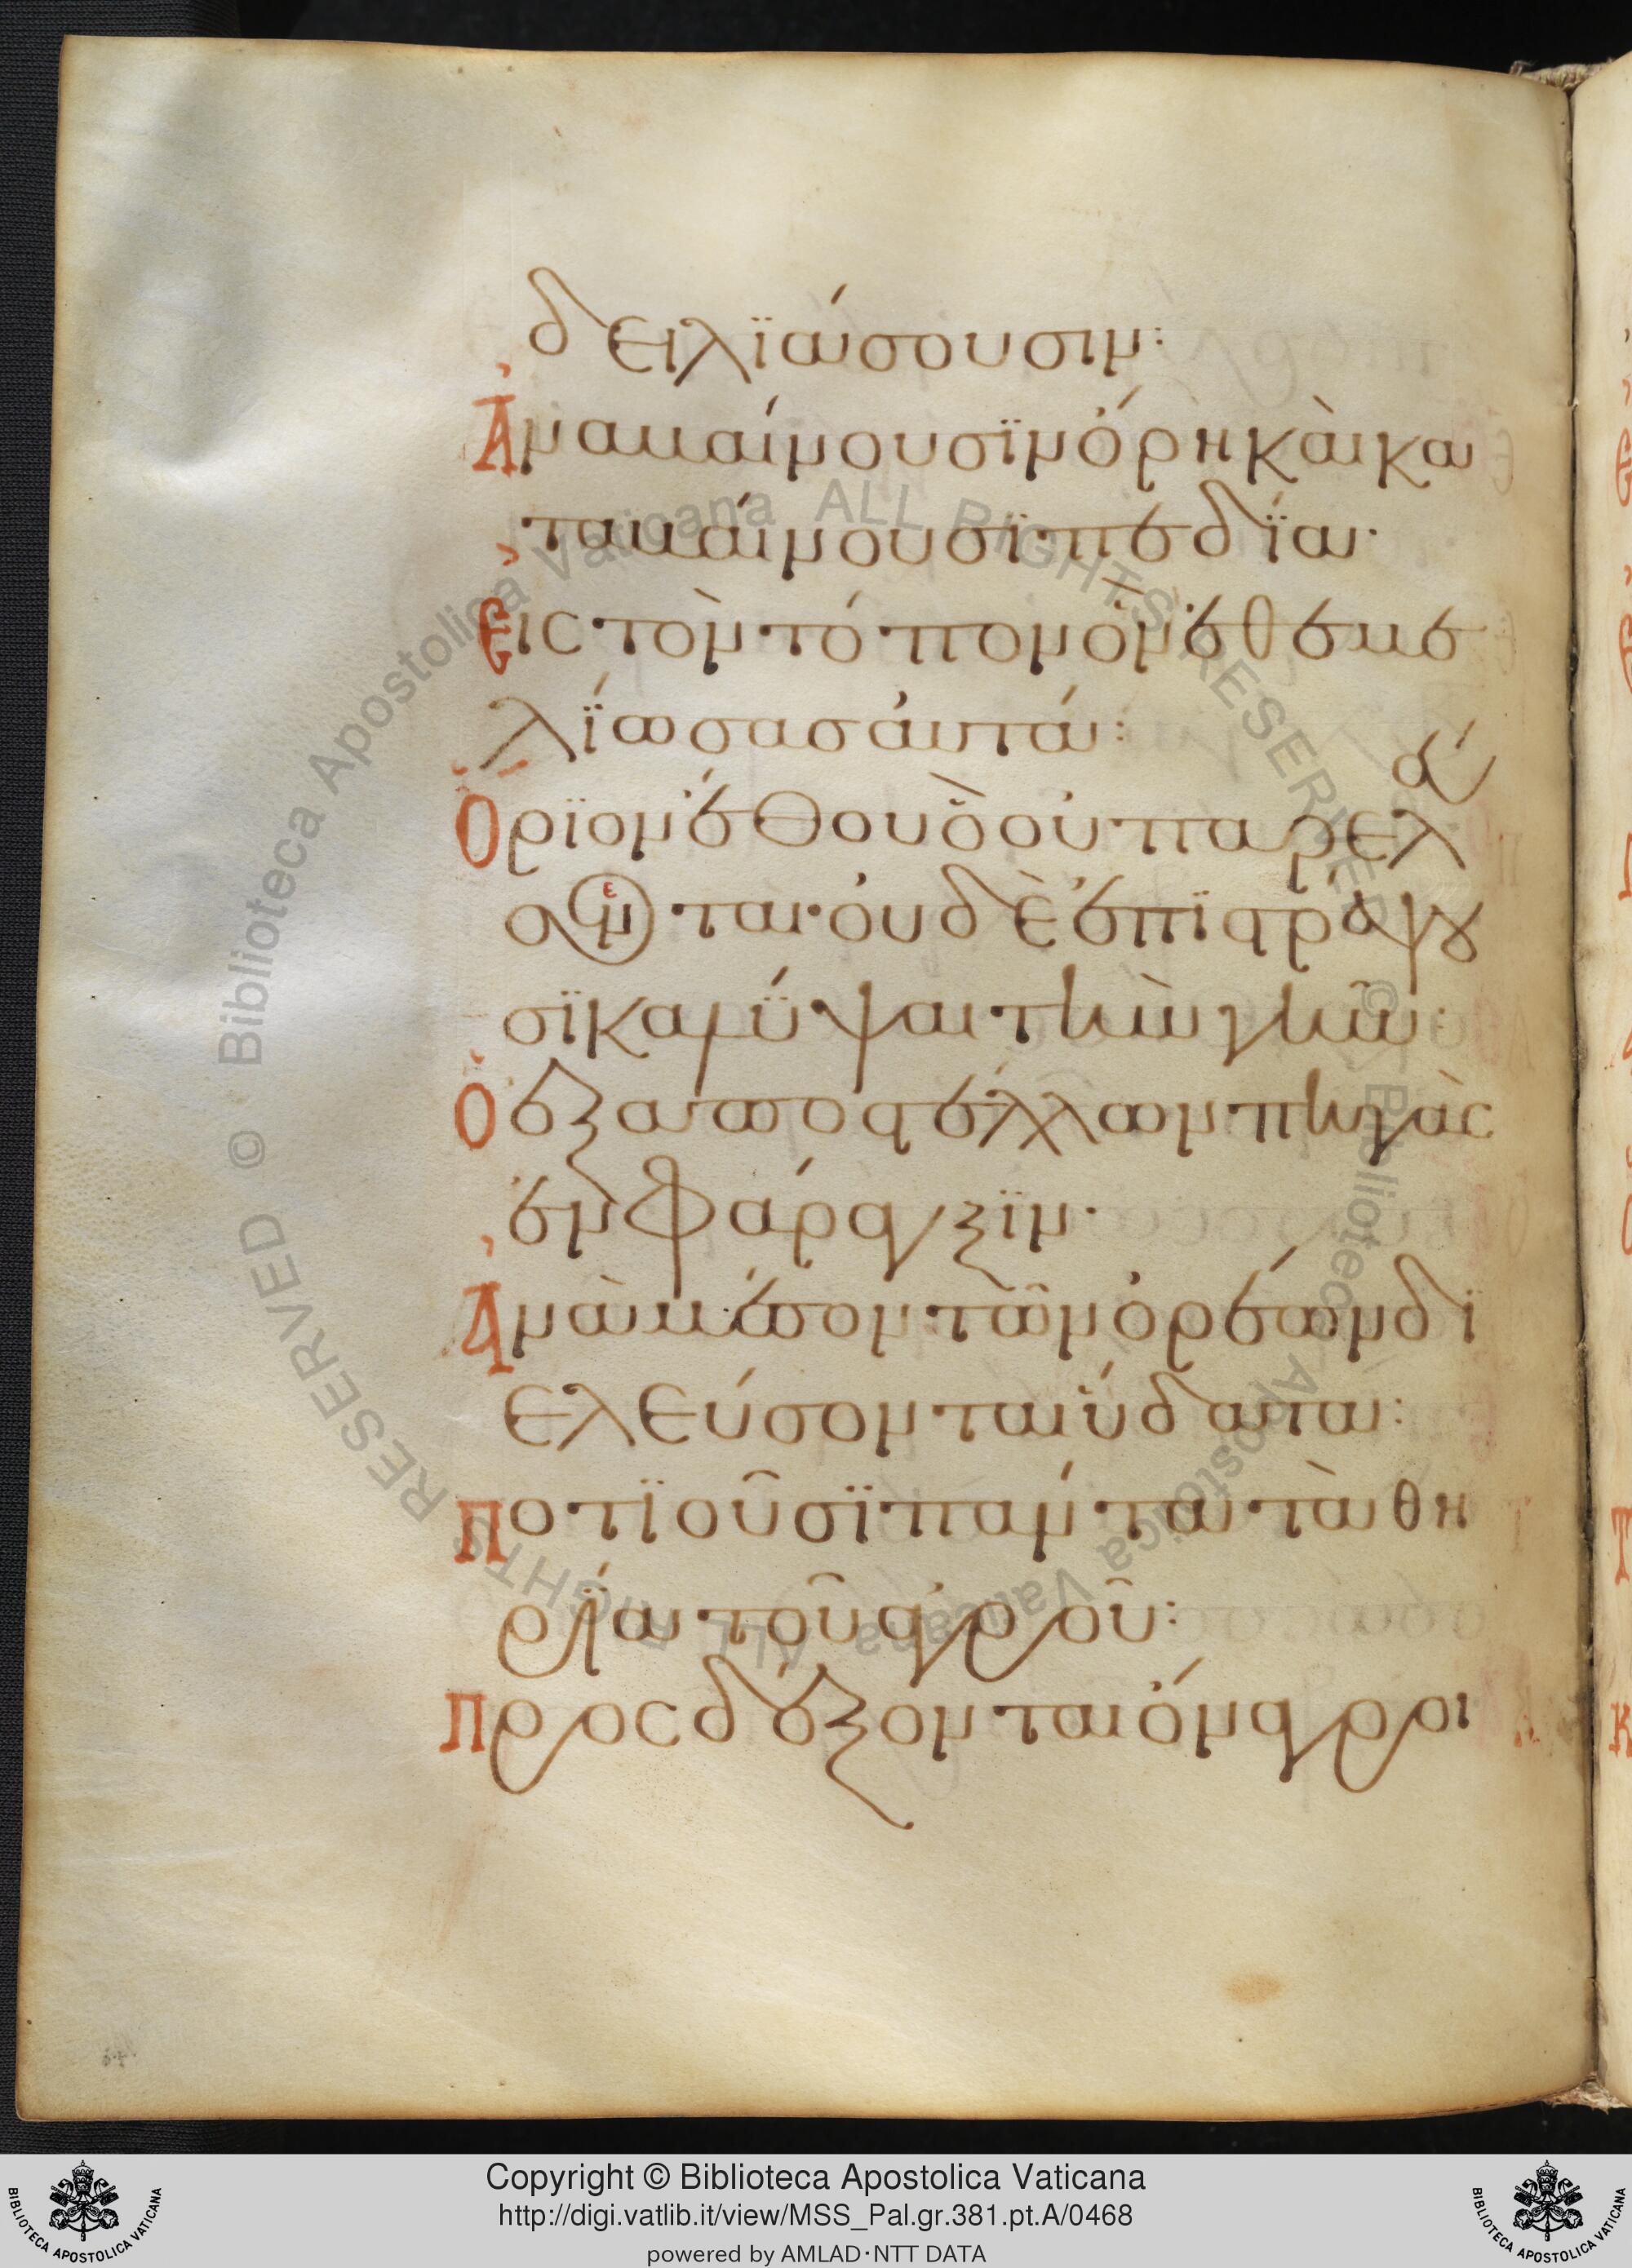 δειλϊάσουσιν:
Ἀναβαίνουσϊν όρη καὶ κα
ταβαίνουσϊ πεδία·
Εἰς τὸν τόπον ὃν ἐθεμε
λίωσας ἀυτά:
Ὅρϊον ἔθου ὃ οὐ παρελ
εύσονται· ὀυδὲ ἐπϊστρέψου
σϊ καλύψαι τὴν γῆν:
Ὁ ἐξαποστέλλων πηγὰς
ἐν φάραγξϊν·
Ἀνὰ μέσον τῶν ὀρέων δϊ
ελεύσονται ὕδατα:
Ποτϊοῦσϊ πάντα τὰ θη
ρία τοῦ ἀγροῦ:
Προσδέξονται ὄναγροι
Copyright © Biblioteca Apostolica Vaticana
http://digi.vatlib.it/view/MSS_Pal.gr.381.pt.A/0468
powered by AMLAD·NTT DATA
BIBLIOTECA APOSTOLICA VATICANA
BIBLIOTECA APOSTOLICA VATICANA
© Biblioteca Apostolica Vaticana ALL RIGHTS RESERVED © Biblioteca Apostolica Vaticana ALL RIGHTS RESERVED